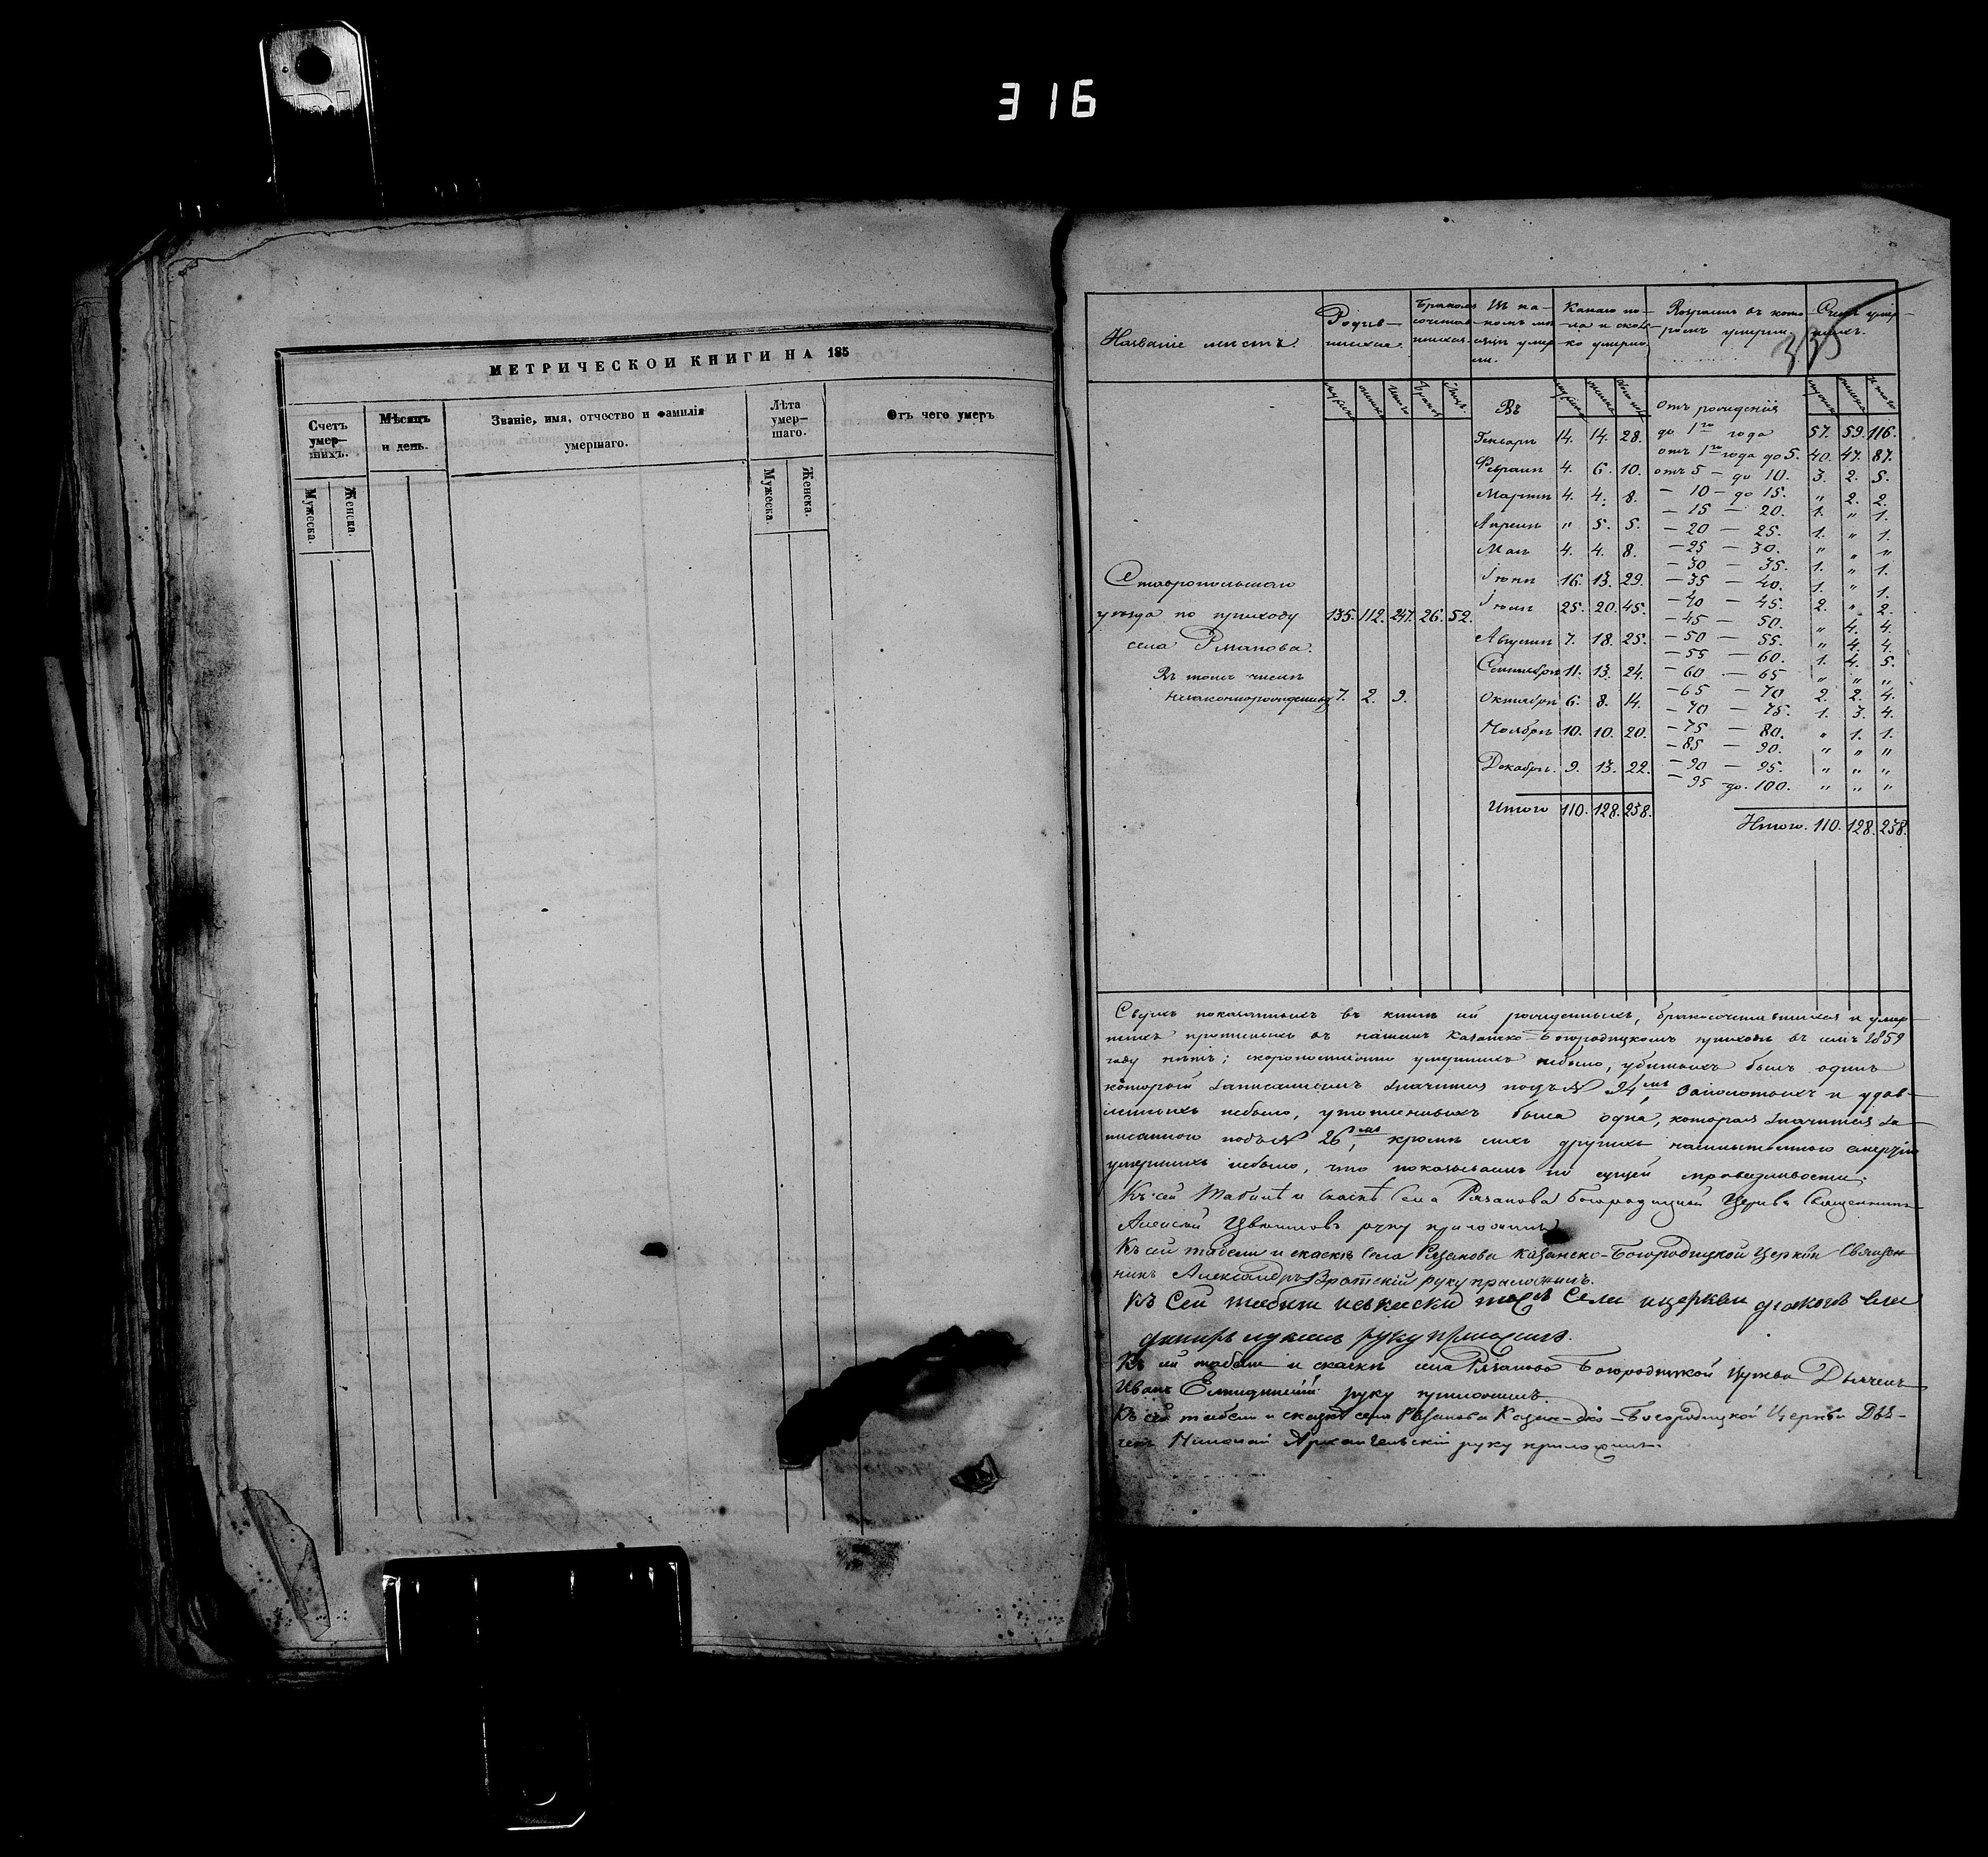 316
МЕТРИЧЕСКОЙ КНИГИ НА 185
Счетъ умер-шихъ.
Мѣсяцъ и день.
Званіе, имя, отчество и фамилія умершаго.
Лѣта умер-шаго.
Отъ чего умеръ
Мужеска. Женска.
Мужеска. Женска.
335
Названіе мѣстъ.
Родив-шихся.
Бракомъ сочетав-шихся
Въ ка-комъ мѣ-сяцѣ умер-ли.
Какаго по-ла и сколь-ко умерло.
Возрастъ въ кото-ромъ умерли
Счетъ умер-шихъ.
Въ
отъ рожденія
Генварѣ 14. 14. 28. до 1го года 57. 59. 116.
Февралѣ 4. 6. 10. отъ 1го года до 5. 40. 47. 87.
Мартѣ 4. 4. 8. отъ 5 — до 10. 3. 2. 5.
Апрелѣ " 5. 5. — 10 — до 15. " 2. 2.
Маѣ 4. 4. 8. — 15 — 20. 1. " 1.
Іюнѣ 16. 13. 29. — 20 — 25. 1. " 1.
Іюлѣ 25. 20. 45. — 25 — 30. " " "
Августѣ 7. 18. 25. — 30 — 35. 1. " 1.
Сентябрѣ 11. 13. 24. — 35 — 40. 1. " 1.
Октябрѣ 6. 8. 14. — 40 — 45. 2. " 2.
Ноябрѣ 10. 10. 20. — 45 — 50. " 4. 4.
Декабрѣ. 9. 13. 22. — 50 — 55. " 4. 4.
— 55 — 60. 1. 4. 5.
— 60 — 65 " " "
— 65 — 70 2. 2. 4.
— 70 — 75. 1. 3. 4.
— 75 — 80. " 1. 1.
— 85 — 90. " " "
— 90 — 95. " " "
— 95 до 100. " " "
Итого 110. 128. 238.
Итого. 110. 128. 238.
Ставропольскаго
уѣзда по приходу 135. 112. 247. 26. 52.
села Рязанова.
Въ томъ числѣ
незаконнорожденныхъ 7. 2. 9.
Сверхъ показанныхъ въ книгѣ сей рожденныхъ, бракосочетавшихся и умер-
шихъ въ нашемъ Казанско-Богородицкомъ приходѣ въ семъ 1859
году нѣтъ; скоропостижно умершихъ небыло, убитыхъ былъ одинъ
который записаннымъ значится подъ № 24мъ, и удав-
небыло, была одна, которая значится за-
писанною подъ № 26мъ, кромѣ сихъ другихъ насильственною смертію
умершихъ небыло, что показываемъ по сущей справедливости.
Къ сей Табели и Сказкѣ Села Рязанова Богородицкой Церкви Священникъ
Алексѣй Цвѣтковъ руку приложилъ
Къ сей табели и сказкѣ Села Рязанова Казанско-Богородицкой Церкви Священ-
никъ Александръ руку приложилъ.
Къ Сей табели и сказки тогожъ Села и церкви діаконъ
руку приложилъ.
Къ сей табели и сказкѣ села Рязанова Богородицкой Церкви Дьячекъ
Иванъ руку приложилъ.
Къ сей табели и сказкѣ села Рязанова Казан-ско-Богородицкой Церкви Дья-
чекъ Николай Архангельскій руку приложилъ.